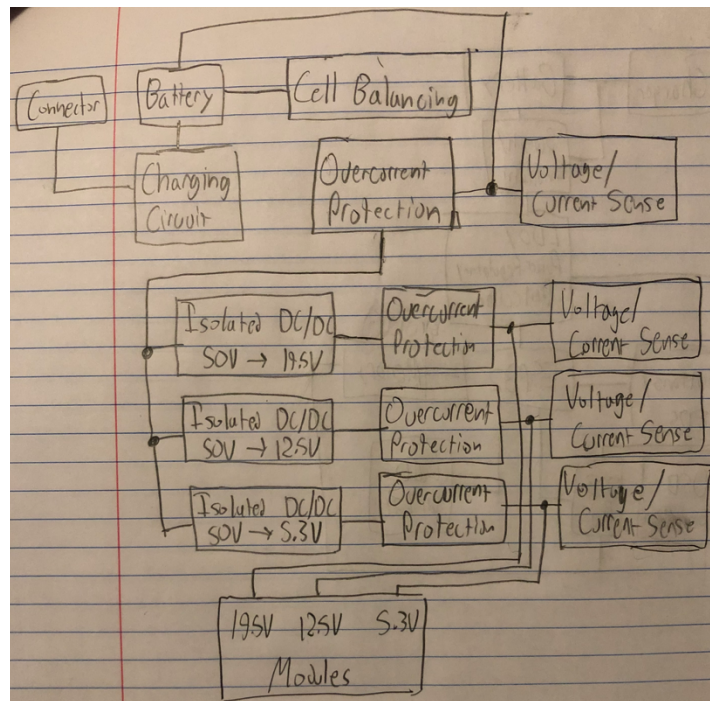 Connector
Battery
Cell Balancing
Charging
Circuit
Overcurrent
Protection
Voltage/
Current Sense
Isolated DC/DC
50V → 19.5V
Overcurrent
Protection
Voltage/
Current Sense
Isolated DC/DC
50V → 12.5V
Overcurrent
Protection
Voltage/
Current Sense
Isolated DC/DC
50V → 5.3V
Overcurrent
Protection
Voltage/
Current Sense
19.5V 12.5V 5.3V
Modules